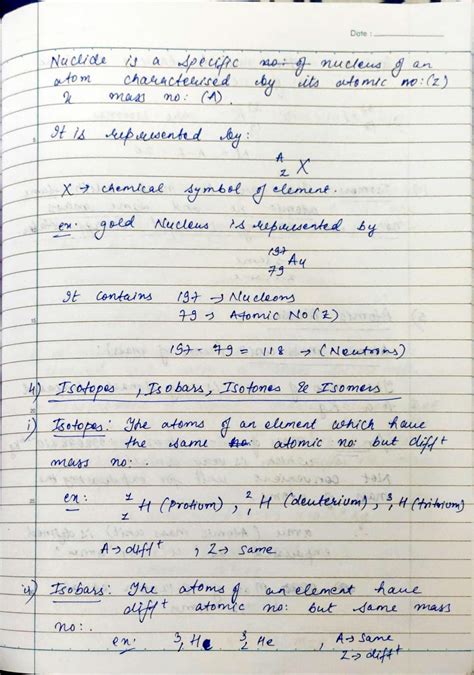 Date :
Nuclide is a specific no: of nucleus of an
atom characterised by its atomic no:(Z)
& mass no: (A).
It is represented by:
A
Z X
X → chemical symbol of element.
ex: gold Nucleus is represented by
197
79 Au
It contains 197 → Nucleons
79 → Atomic No(Z)
197 - 79 = 118 → (Neutrons)
4) Isotopes , Isobars, Isotones & Isomers
i) Isotopes: The atoms of an element which have
the same no atomic no: but diff^t
mass no: .
ex: ¹₁H (Protium), ²₁H (deuterium), ³₁H (tritium)
A → diff^t , Z → same
ii) Isobars: The atoms of an element have
diff^t atomic no: but same mass
no: .
ex: ³₁He ³₂He , A → same
Z → diff^t